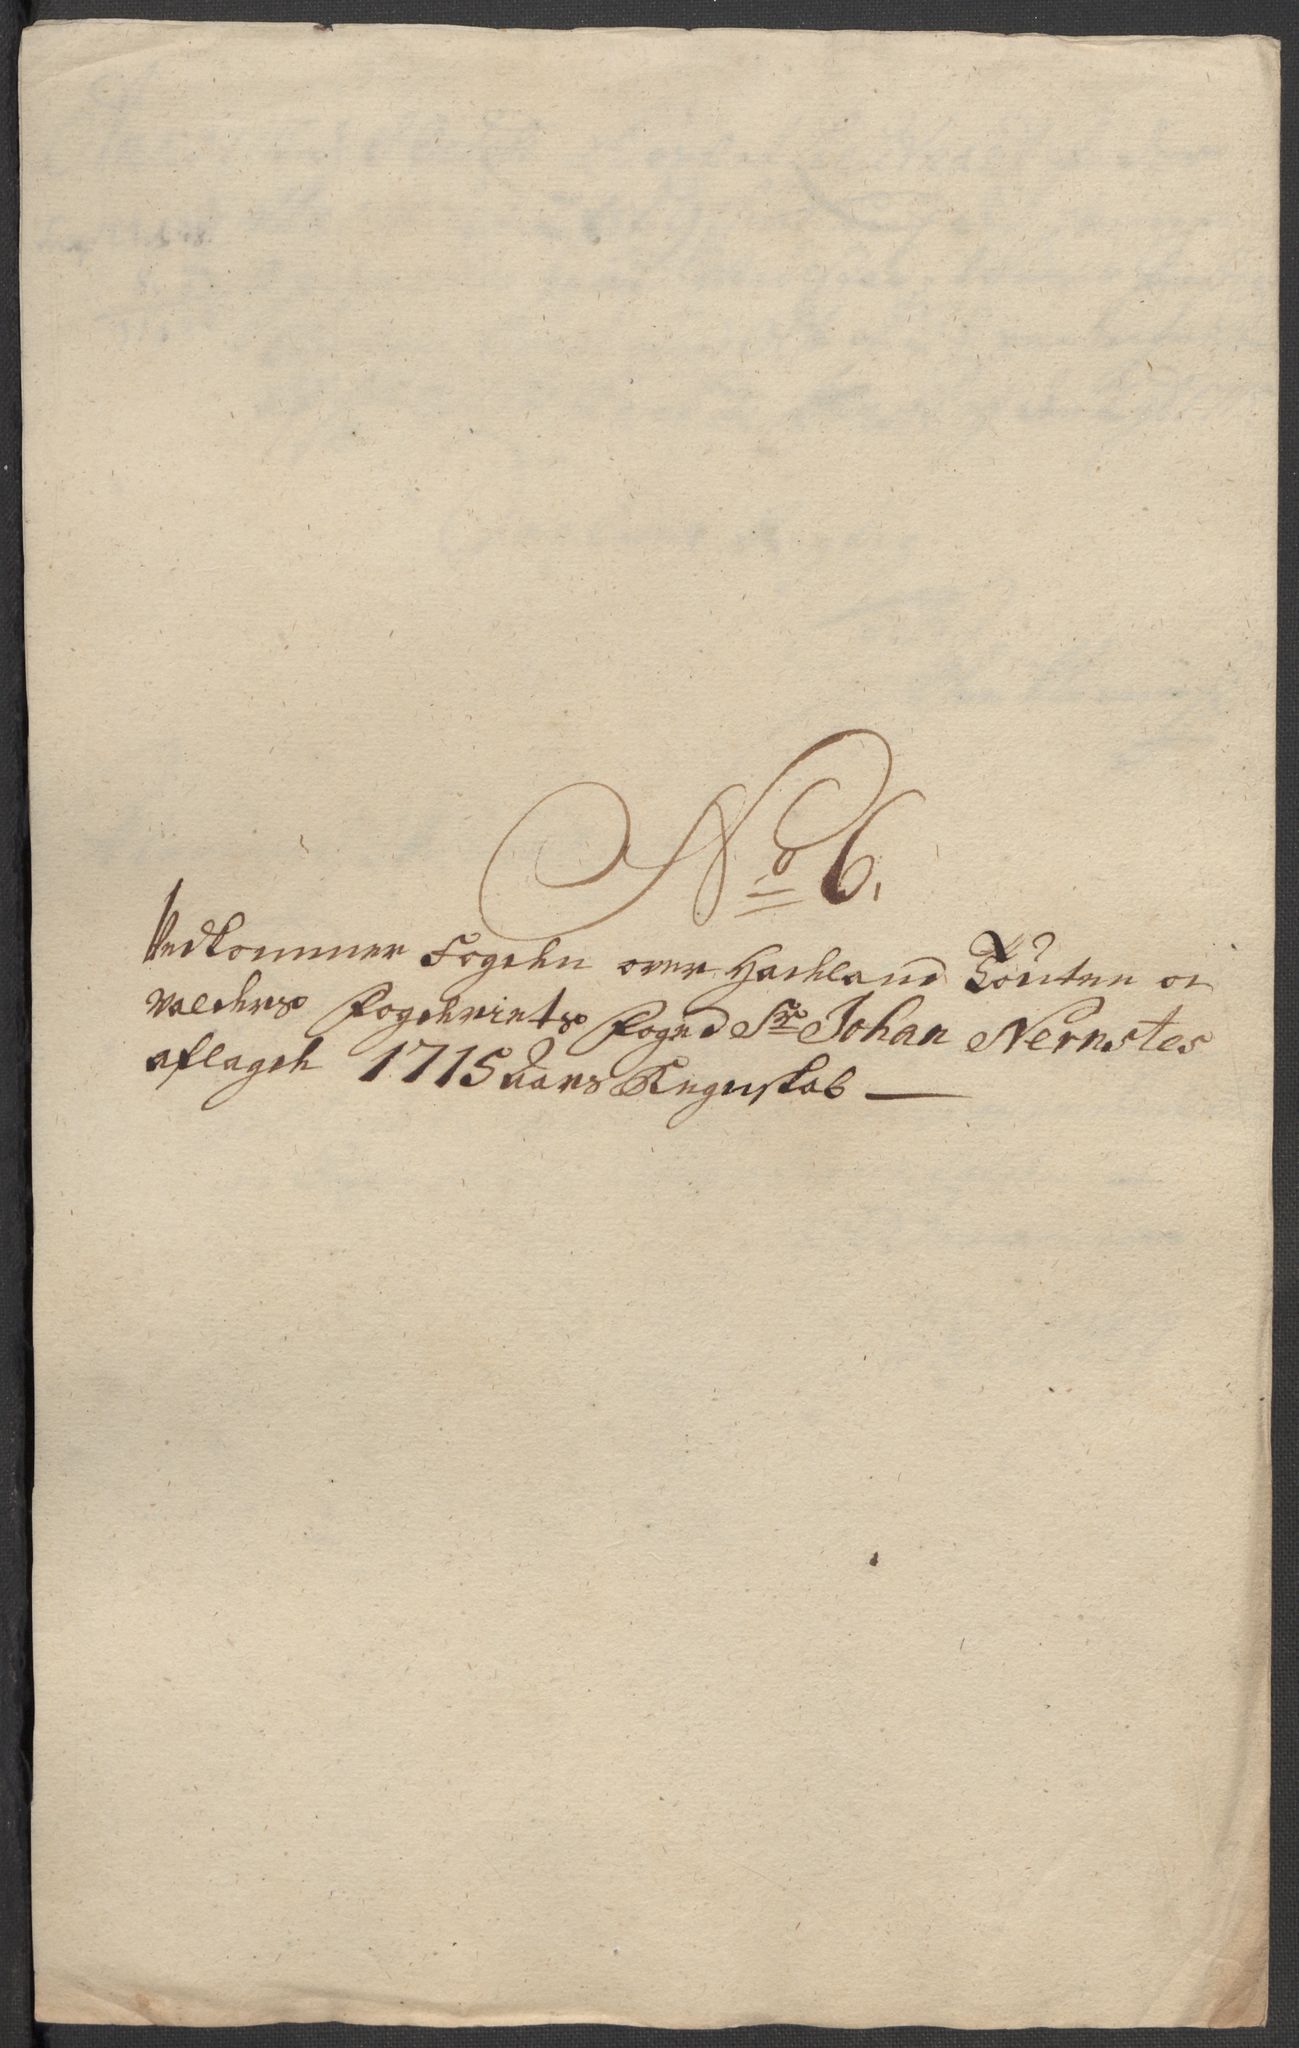 No 6.
Vedkommer Fogden over Hadeland Toten og
Valders Fogderiets Foged Sr Johan Nernstes
aflagde 1715 Aars Regenskab —